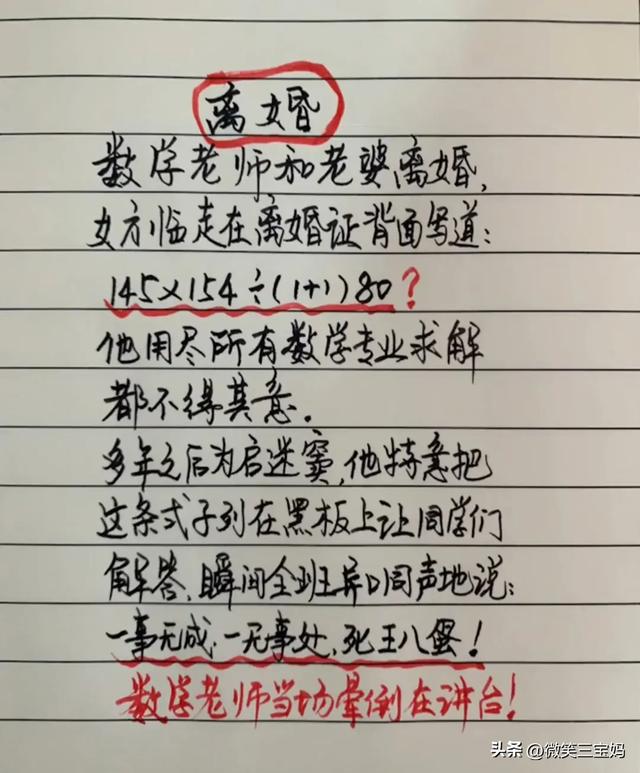 离婚
数学老师和老婆离婚,
女方临走在离婚证背面写道:
145×154÷(1+1)80?
他用尽所有数学专业求解
都不得其意.
多年之后为启迷窦,他特意把
这条式子列在黑板上让同学们
解答,瞬间全班异口同声地说:
一事无成,一无事处,死王八蛋!
数学老师当场晕倒在讲台!
头条 @微笑三宝妈